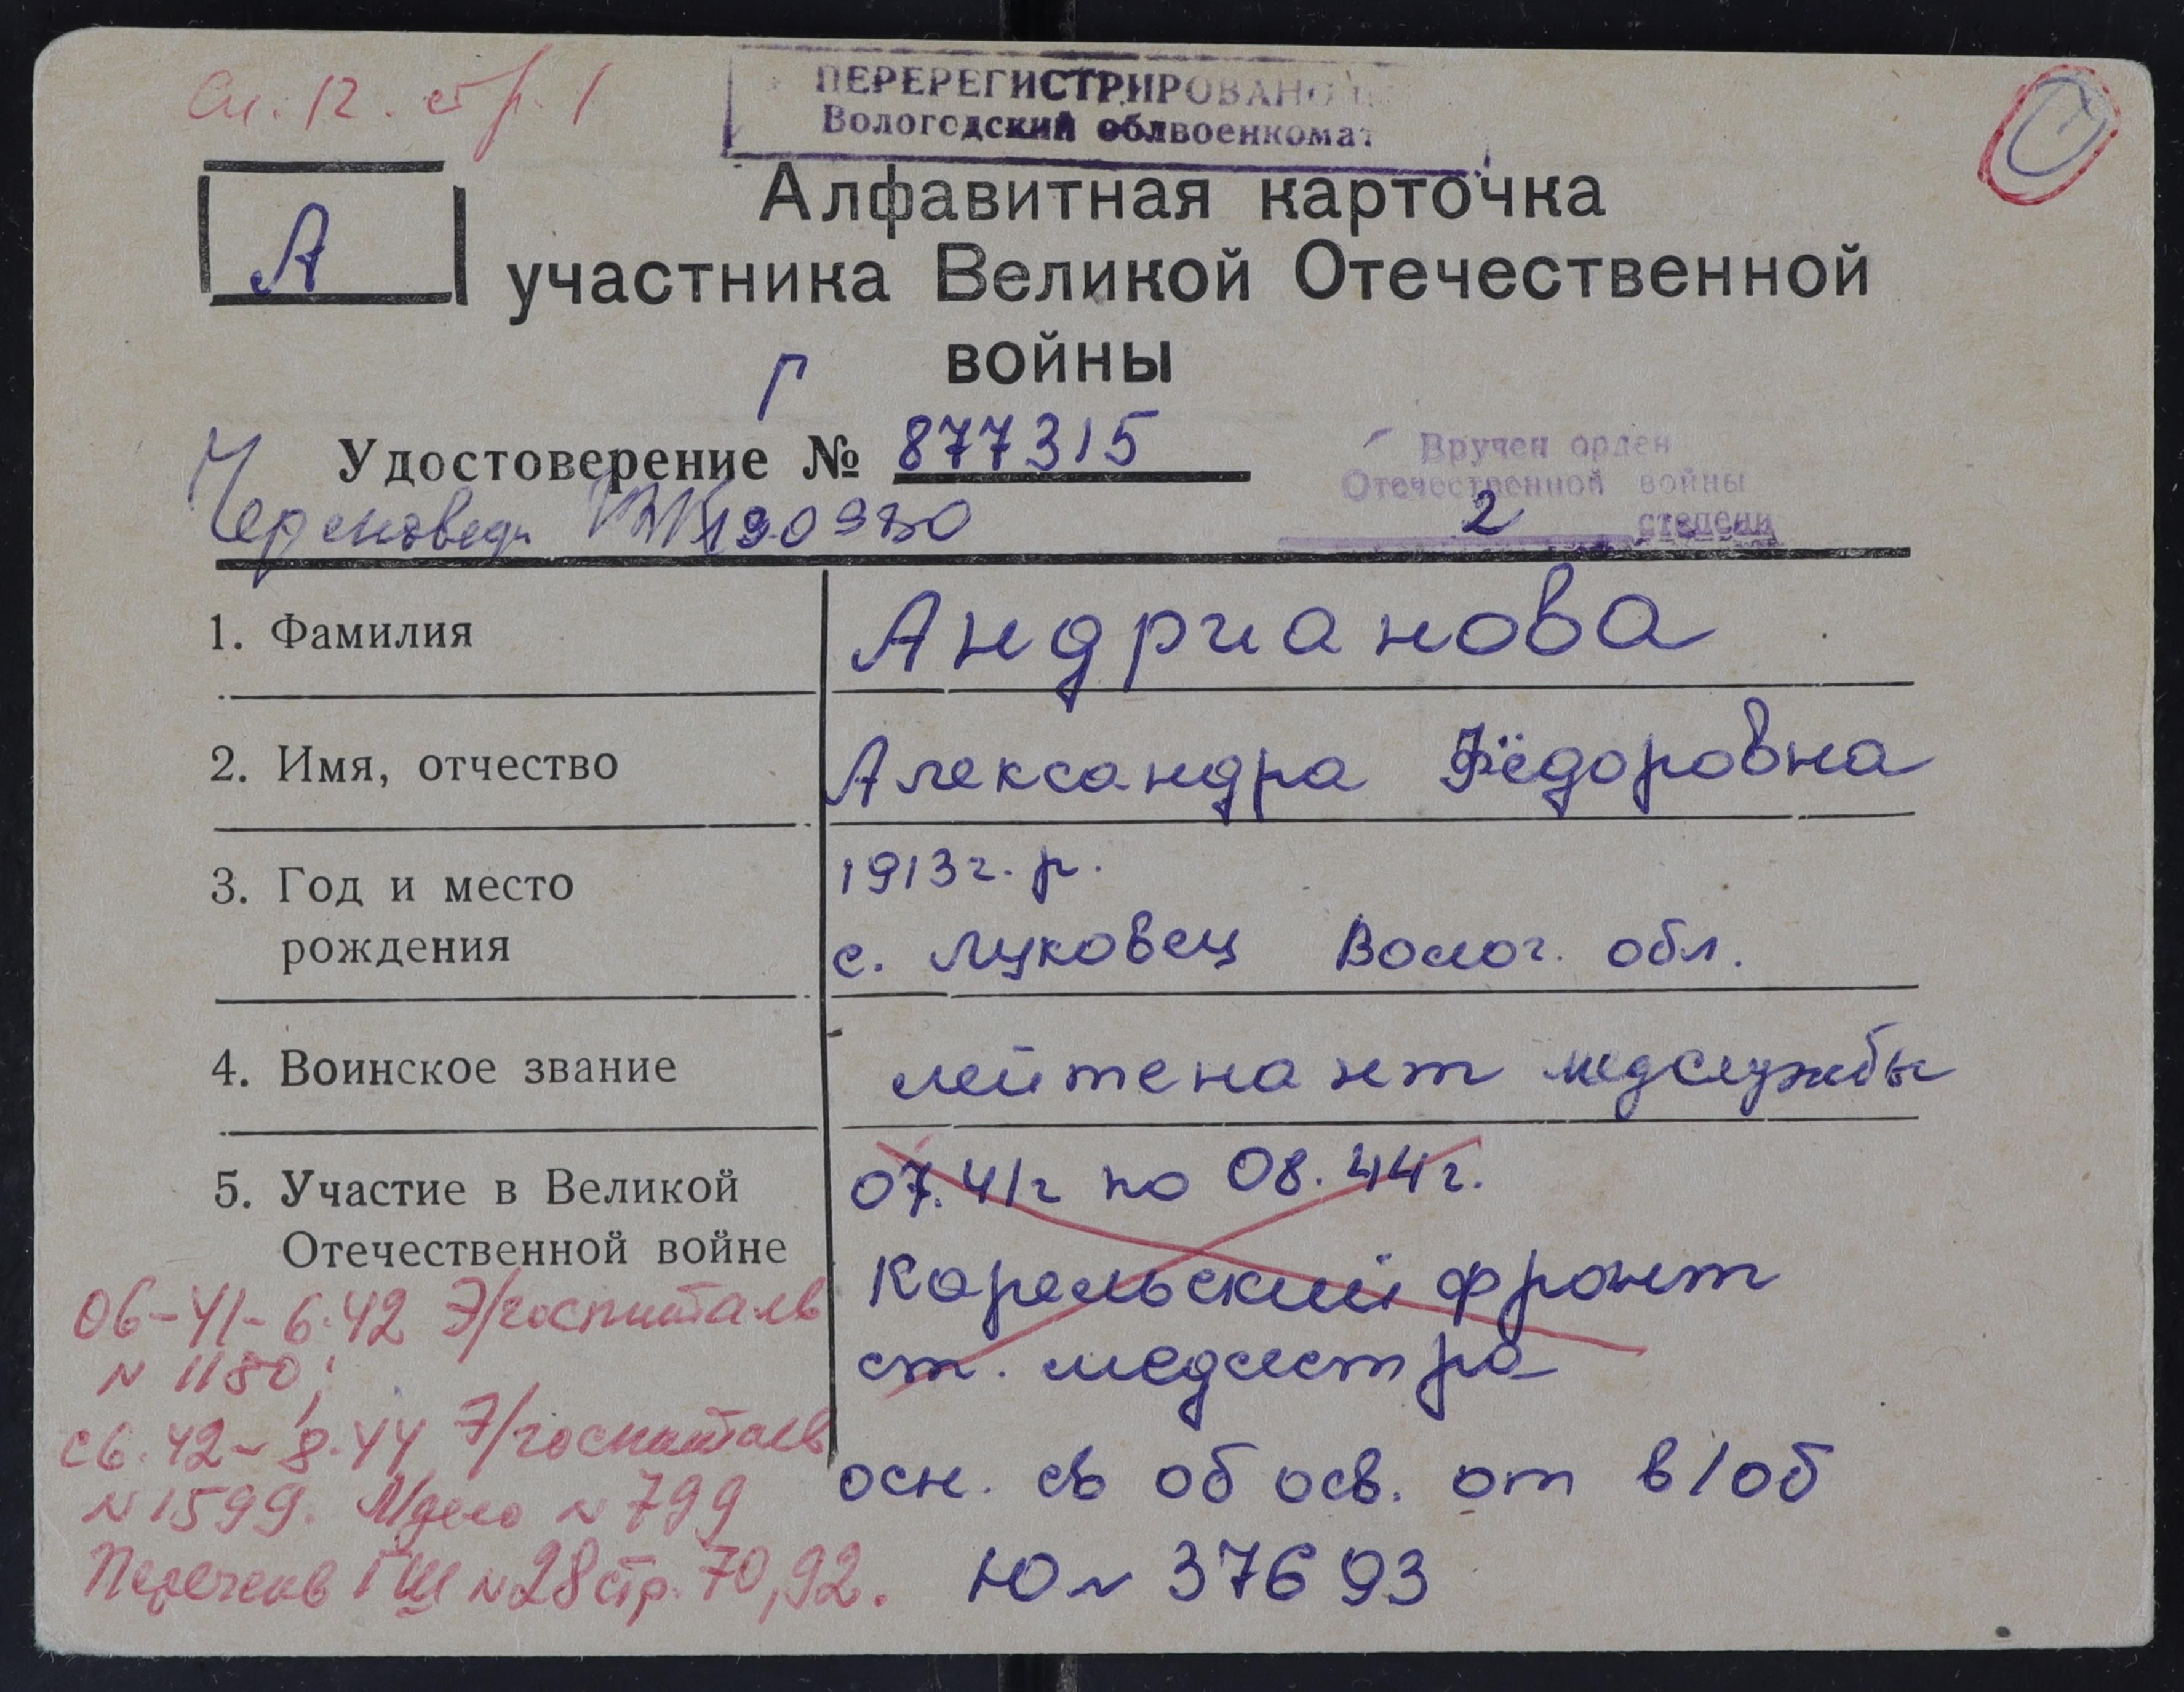 Сп. 12. стр. 1
ПЕРЕРЕГИСТРИРОВАНО
Вологодский облвоенкомат
А
Алфавитная карточка
участника Великой Отечественной
войны
Г
Удостоверение № 877315
Вручен орден
Отечественной войны
2 степени
190980
1. Фамилия Андрианова
2. Имя, отчество Александра Фёдоровна
3. Год и место рождения 1913 г. р.
с. Луковец Волог. обл.
4. Воинское звание лейтенант медслужбы
5. Участие в Великой Отечественной войне 07.41г по 08.44г.
Карельский фронт
ст. медсестра
осн. св об осв. от в/об
Ю № 37693
06-41-6.42 Э/госпиталь
№ 1180;
с 6.42-8.44 Э/госпиталь
№ 1599. Л/дело № 799
Перечень ГШ № 28 стр. 70,92.